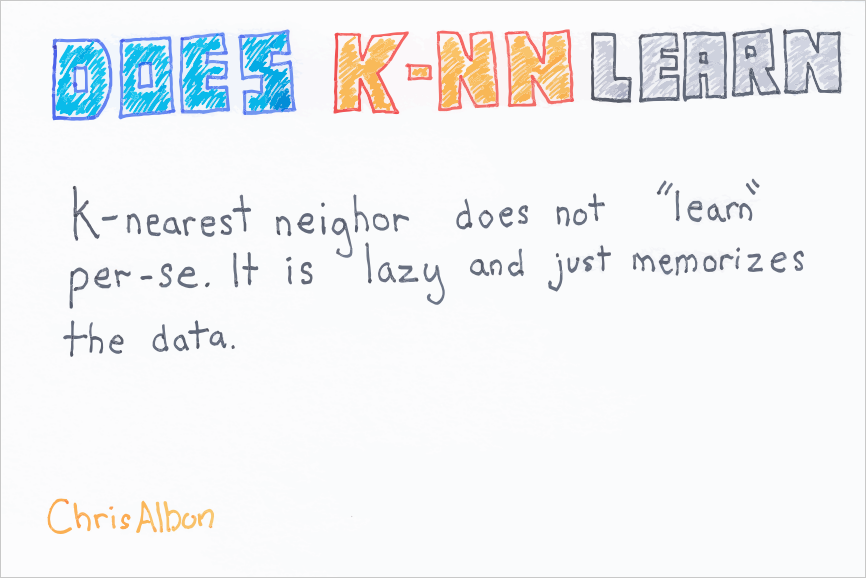 DOES K-NN LEARN
K-nearest neighor does not "learn"
per-se. It is lazy and just memorizes
the data.
Chris Albon